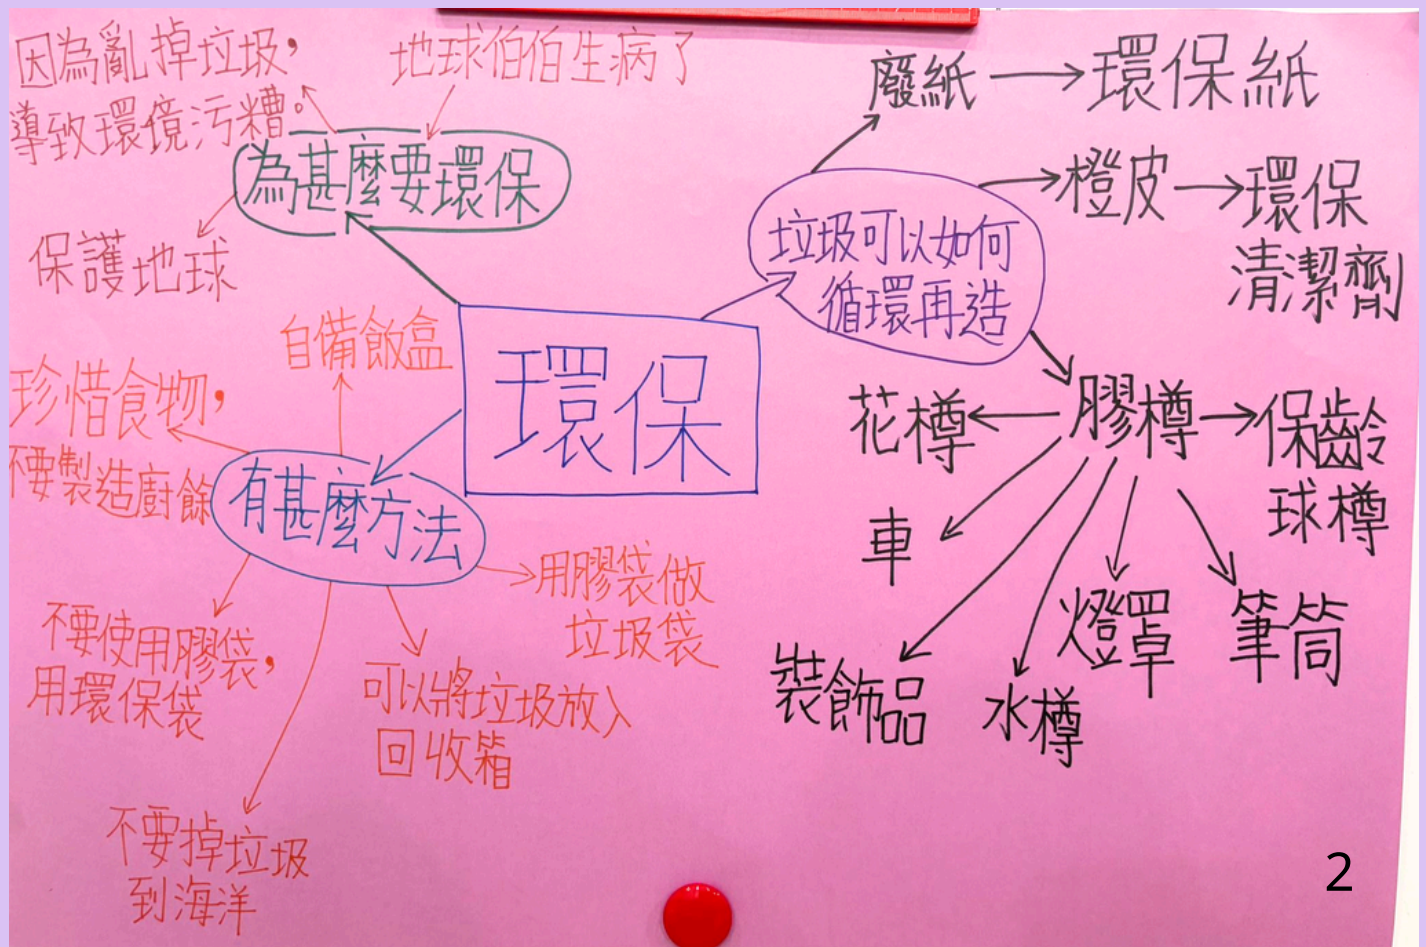 環保
為甚麼要環保
因為亂掉垃圾，
導致環境污糟。
地球伯伯生病了
保護地球
有甚麼方法
自備飯盒
珍惜食物，
不要製造廚餘
不要使用膠袋，
用環保袋
不要掉垃圾
到海洋
可以將垃圾放入
回收箱
用膠袋做
垃圾袋
垃圾可以如何
循環再造
廢紙
環保紙
橙皮
環保
清潔劑
膠樽
花樽
車
裝飾品
水樽
燈罩
筆筒
保齡
球樽
2